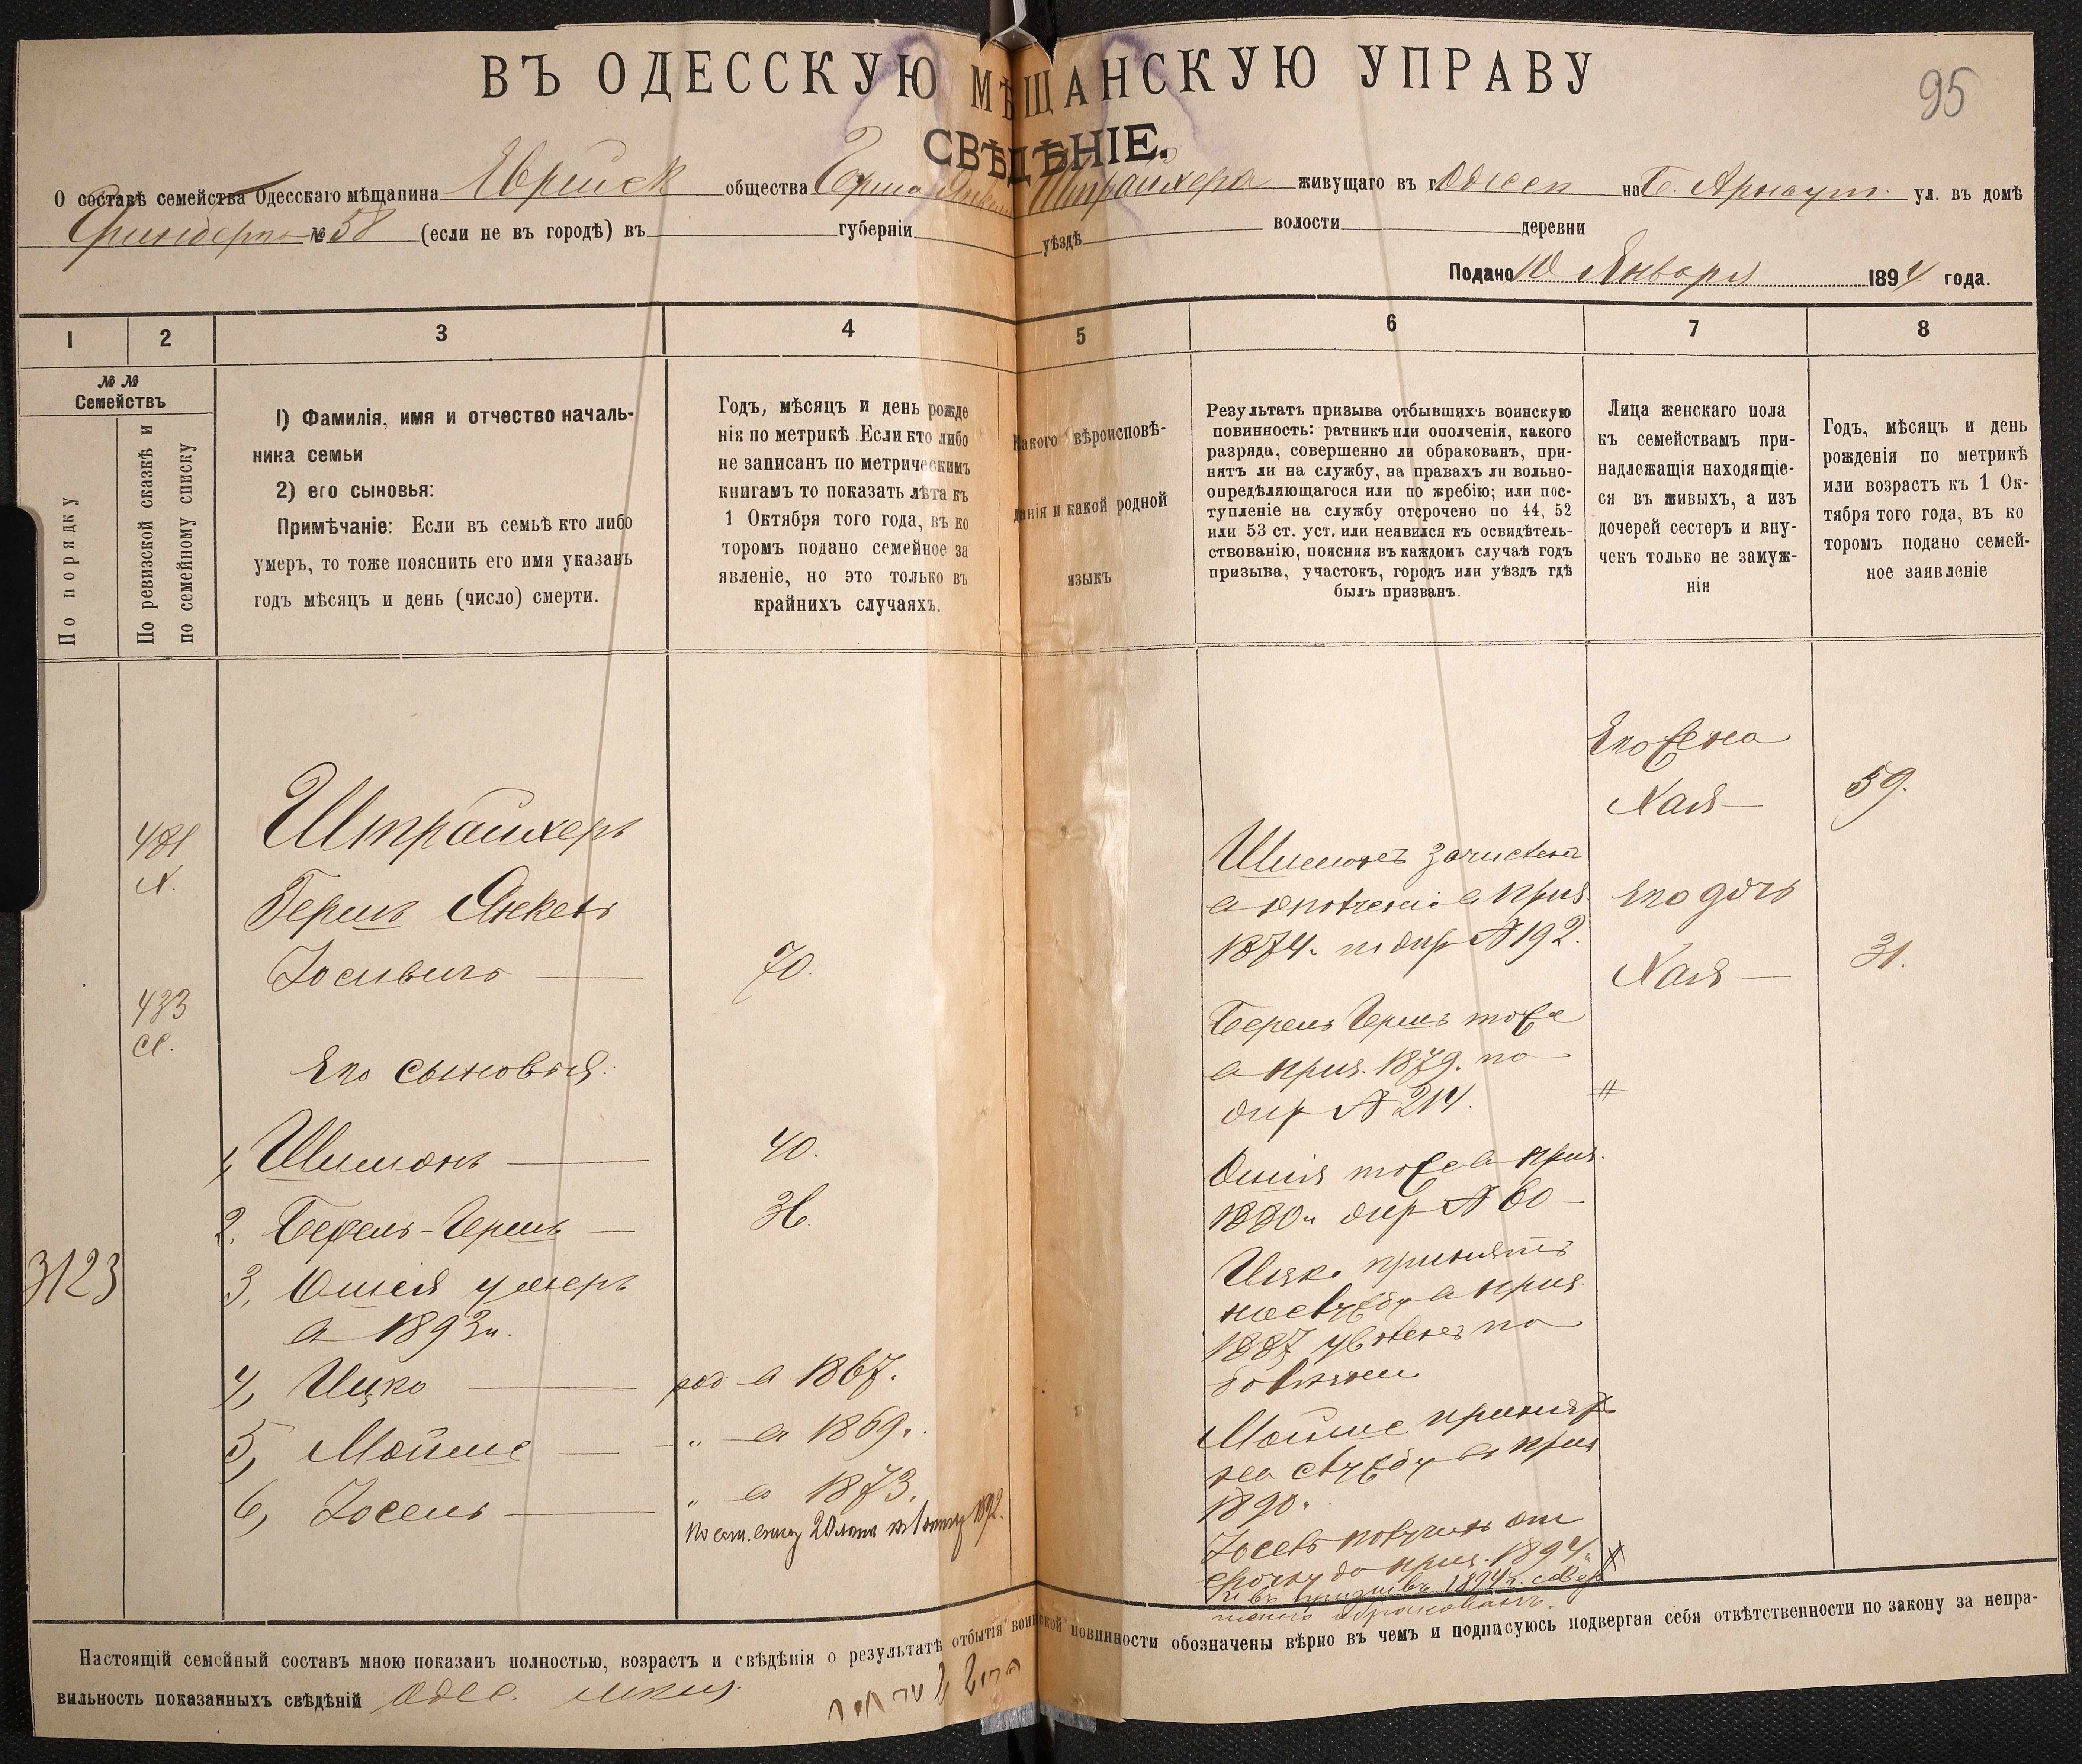 ВЪ ОДЕССКУЮ МѢЩАНСКУЮ УПРАВУ
95
СВѢДѢНІЕ.
О составѣ семейства Одесскаго мѣщанина Еврейск общества Герша Янкеля Штрайхера живущаго въ г. Одессѣ на Б. Арнаут. ул. въ домѣ
№ 58 (если не въ городѣ) въ губерніи уѣздѣ волости деревни
Подано 10 Января 1894 года.
1 2 3 4 5 6 7 8
№ № Семействъ
По порядку
По ревизской сказкѣ и
по семейному списку
1) Фамилія, имя и отчество началь-
ника семьи
2) его сыновья:
Примѣчаніе: Если въ семьѣ кто либо
умеръ, то тоже пояснить его имя указавъ
годъ мѣсяцъ и день (число) смерти.
Годъ, мѣсяцъ и день рожде
нія по метрикѣ Если кто либо
не записанъ по метрическимъ
книгамъ то показать лѣта къ
1 Октября того года, въ ко
торомъ подано семейное за
явленіе, но это только въ
крайнихъ случаяхъ.
Какого вѣроисповѣ-
данія и какой родной
языкъ
Результатъ призыва отбывшихъ воинскую
повинность: ратникъ или ополченія, какого
разряда, совершенно ли обракованъ, при-
нятъ ли на службу, на правахъ ли вольно-
опредѣляющагося или по жребію; или пос-
тупленіе на службу отсрочено по 44, 52
или 53 ст. уст. или неявился къ освидѣтель-
ствованію, поясняя въ каждомъ случаѣ годъ
призыва, участокъ, городъ или уѣздъ гдѣ
былъ призванъ.
Лица женскаго пола
къ семействамъ при-
надлежащія находящіе-
ся въ живыхъ, а изъ
дочерей сестеръ и вну-
чекъ только не замуж-
нія
Годъ, мѣсяцъ и день
рожденія по метрикѣ
или возрастъ къ 1 Ок-
тября того года, въ ко
торомъ подано семей-
ное заявленіе
3123
481
433
Штрайхеръ
Гершъ Янкель
Іосивичъ 70.
Его сыновья:
1, Шимонъ 40.
2. Берель-Гершъ 36.
3, Ошія умеръ
в 1893 г.
4, Ицко род в 1867.
5, Мойше " в 1869.
6, Іосель " в 1873.
Шимонъ зачислен
в ополченіе в приз.
1874 г. № 192.
Берель Гершъ тоже
в приз. 1879. по
№ 214.
Ошія тоже в приз.
1880 г. № 60
Ицко принятъ
на службу в приз.
1887 уволенъ по
болезни
Мойше принят
на службу въ приз
1890 г.
Іосель получилъ от
срочку до приз. 1894 г.
Его Жена
Хая 59.
Его дочь
Хая 31.
Настоящій семейный составъ мною показанъ полностью, возрастъ и свѣдѣнія о результатѣ отбытія воинской повинности обозначены вѣрно въ чемъ и подписуюсь подвергая себя отвѣтственности по закону за непра-
вильность показанныхъ свѣдѣній